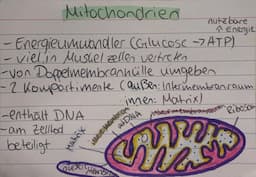 Mitochondrien
nutzbare
↑ Energie
- Energieumwandler (Glucose → ATP)
- viel in Muskelzellen vertreten
- von Doppelmembranhülle umgeben
- 2 Kompartimente (außen: Intermembranraum
innen: Matrix)
- enthält DNA
- am Zelltod
beteiligt
Matrix
mtDNA
Ribosom